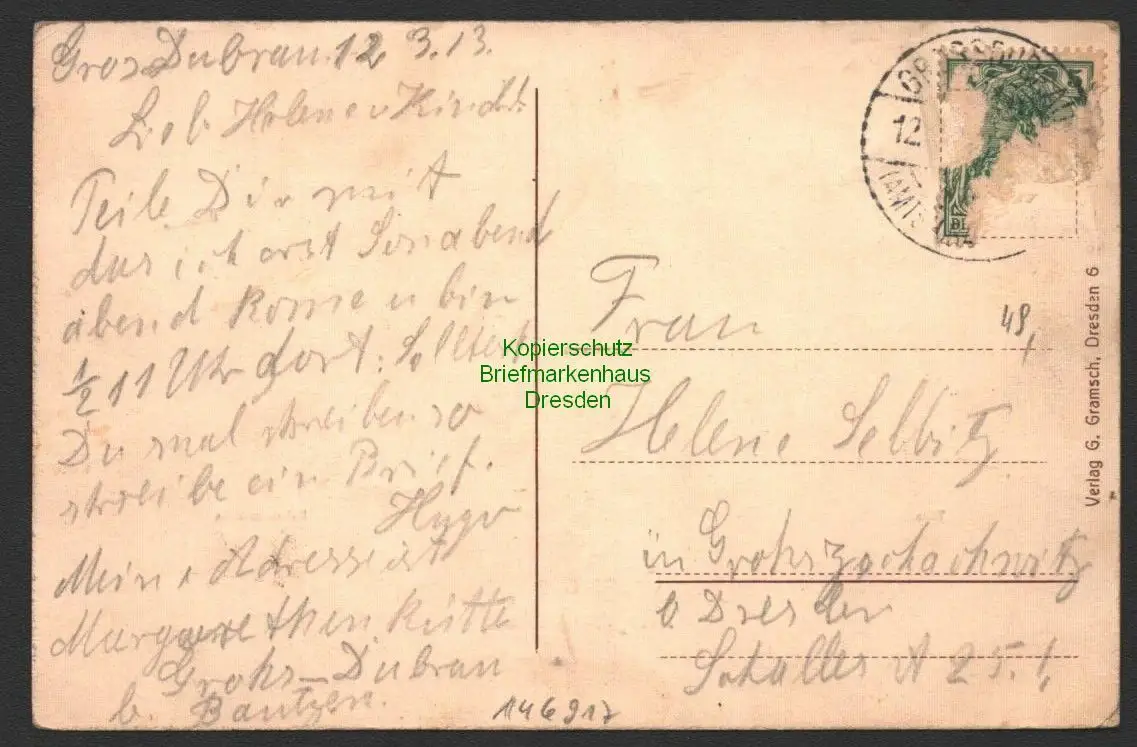 Gros Dubrau 12 3.13.
Lieb Helene u Kindt.
Teile Dir mit
das ich erst Sonabend
abend kome u bin
1/2 11 Uhr dort: Solltest
Du mal schreiben so
schreibe ein Brief.
Hugo
Meine Adresse ist
Margarethenhütte
Grohs-Dubrau
b. Bautzen.
146917
GROSSDU
12
(AMTSH
5
Frau
49,
Helene Selbitz
in Grohszschachwitz
b Dresden
A 25.
Verlag G. Gramsch, Dresden 6
Kopierschutz
Briefmarkenhaus
Dresden